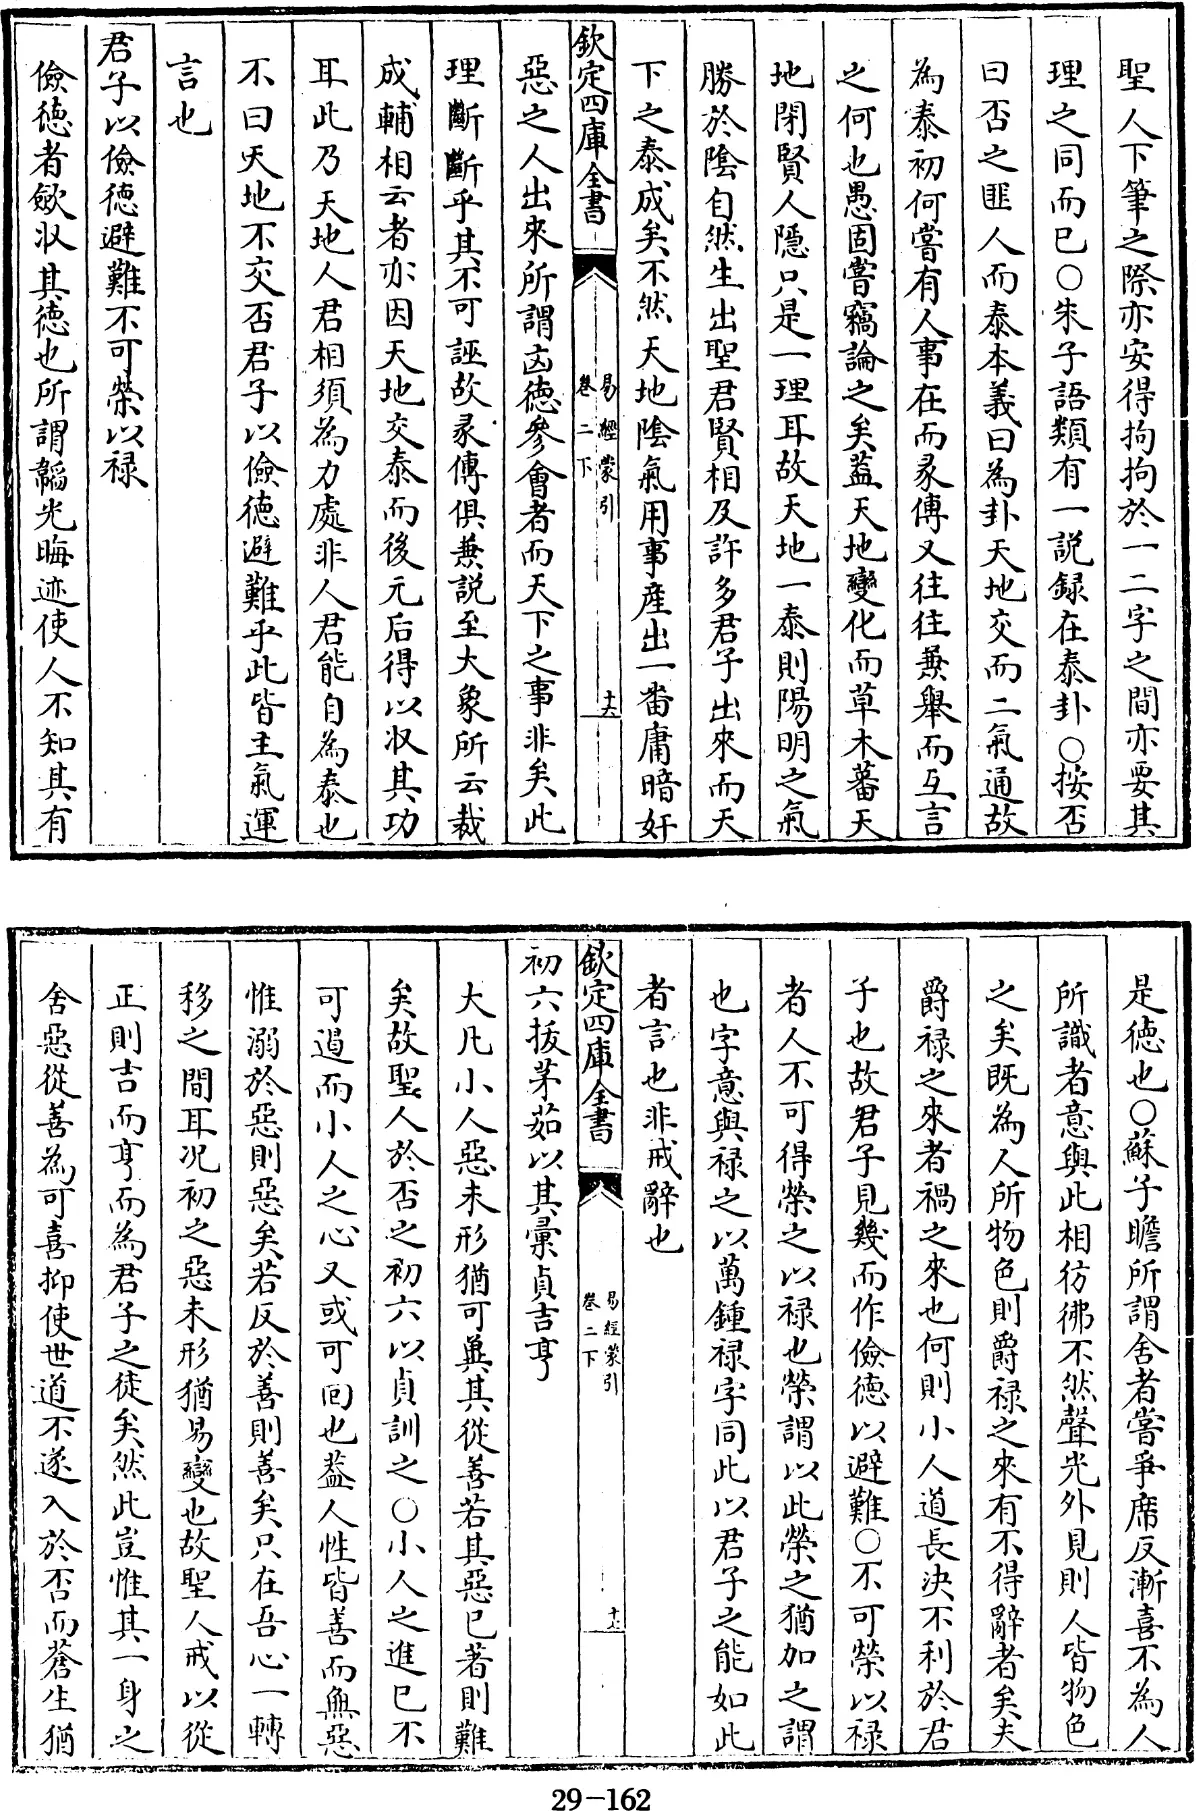 聖人下筆之際亦安得拘拘於一二字之間亦要其
理之同而已○朱子語類有一說録在泰卦○按否
曰否之匪人而泰本義曰為卦天地交而二氣通故
為泰初何嘗有人事在而彖傳又往往兼舉而互言
之何也愚固嘗竊論之矣葢天地變化而草木蕃天
地閉賢人隱只是一理耳故天地一泰則陽明之氣
勝於陰自然生出聖君賢相及許多君子出來而天
下之泰成矣不然天地陰氣用事産出一番庸暗奸
欽定四庫全書
易經蒙引
卷二下
十六
惡之人出來所謂凶德參會者而天下之事非矣此
理斷斷乎其不可誣故彖傳俱兼説至大象所云裁
成輔相云者亦因天地交泰而後元后得以収其功
耳此乃天地人君相須為力處非人君能自為泰也
不曰天地不交否君子以儉德避難乎此皆主氣運
言也
君子以儉德避難不可榮以禄
儉德者斂収其德也所謂韜光晦迹使人不知其有
是德也○蘇子瞻所謂舍者嘗爭席反漸喜不為人
所識者意與此相彷彿不然聲光外見則人皆物色
之矣既為人所物色則爵禄之來有不得辭者矣夫
爵禄之來者禍之來也何則小人道長決不利於君
子也故君子見幾而作儉德以避難○不可榮以禄
者人不可得榮之以禄也榮謂以此榮之猶加之謂
也字意與禄之以萬鍾禄字同此以君子之能如此
者言也非戒辭也
欽定四庫全書
易經蒙引
卷二下
十七
初六拔茅茹以其彚貞吉亨
大凡小人惡未形猶可冀其從善若其惡已著則難
矣故聖人於否之初六以貞訓之○小人之進已不
可遏而小人之心又或可回也葢人性皆善而無惡
惟溺於惡則惡矣若反於善則善矣只在吾心一轉
移之間耳况初之惡未形猶易變也故聖人戒以從
正則吉而亨而為君子之徒矣然此豈惟其一身之
舍惡從善為可喜抑使世道不遂入於否而蒼生猶
29-162